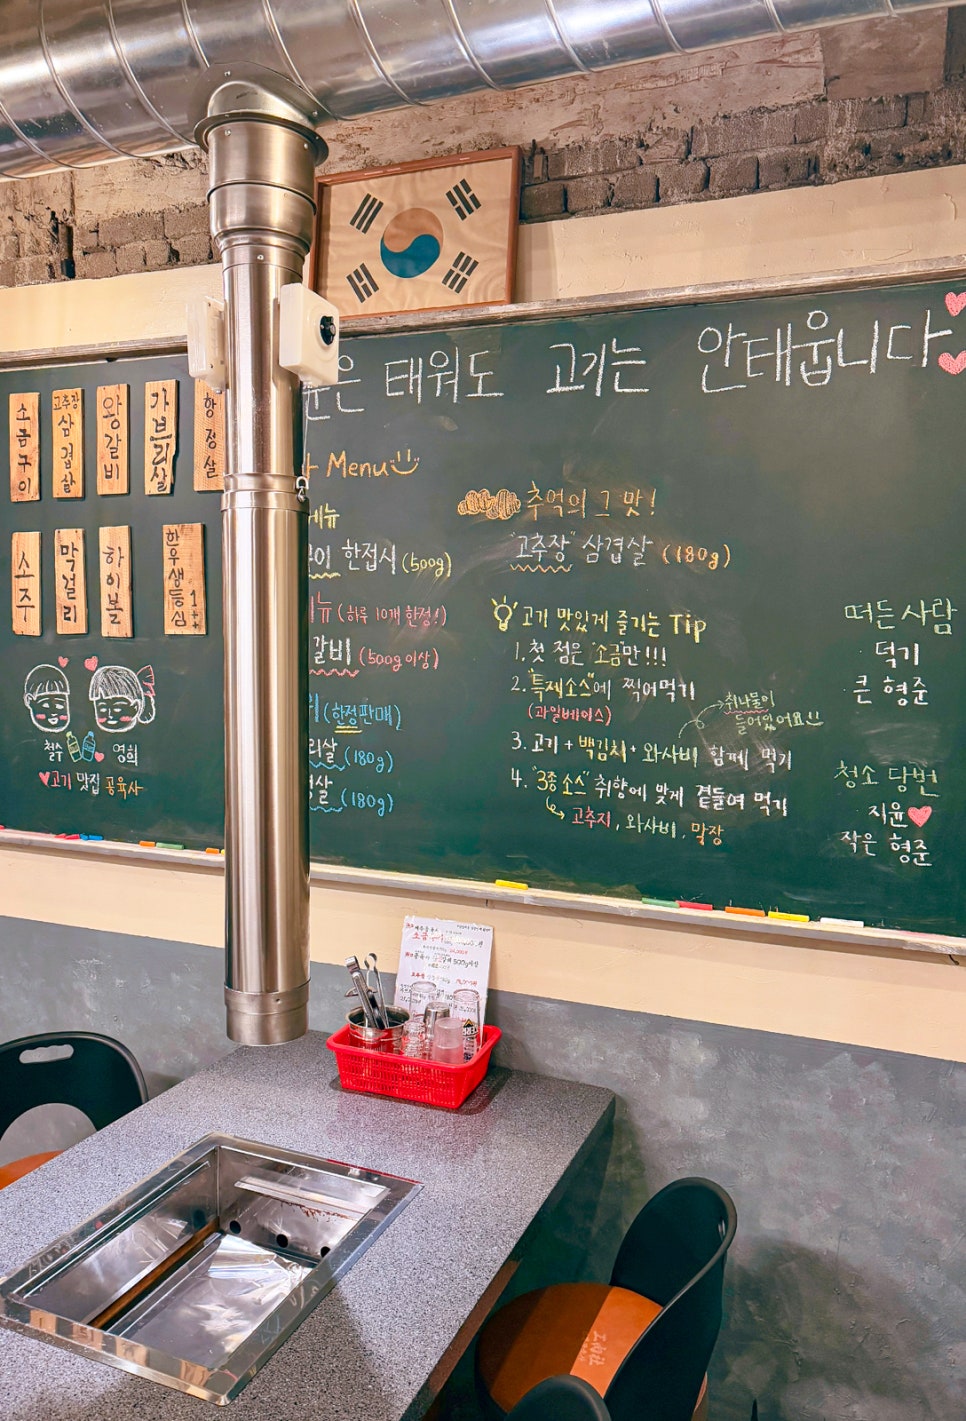 은 태워도 고기는 안태웁니다
소금구이
고추장 삼겹살
왕갈비
가브리살
항정살
소주
막걸리
하이볼
한우생등심 1++
철수 영희
고기 맛집 공육사
Menu
메뉴
한접시 (500g)
(하루 10개 한정!)
갈비 (500g 이상)
(한정판매)
리살 (180g)
살 (180g)
추억의 그 맛!
"고추장" 삼겹살 (180g)
고기 맛있게 즐기는 Tip
1. 첫 점은 "소금"만!!!
2. "특제소스"에 찍어먹기
(과일베이스)
취나물이
들어있어요
3. 고기 + 백김치 + 와사비 함께 먹기
4. "3종 소스" 취향에 맞게 곁들여 먹기
고추지, 와사비, 막장
떠든 사람
덕기
큰 형준
청소 당번
지윤
작은 형준